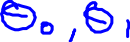 Θ₀, Θ₁